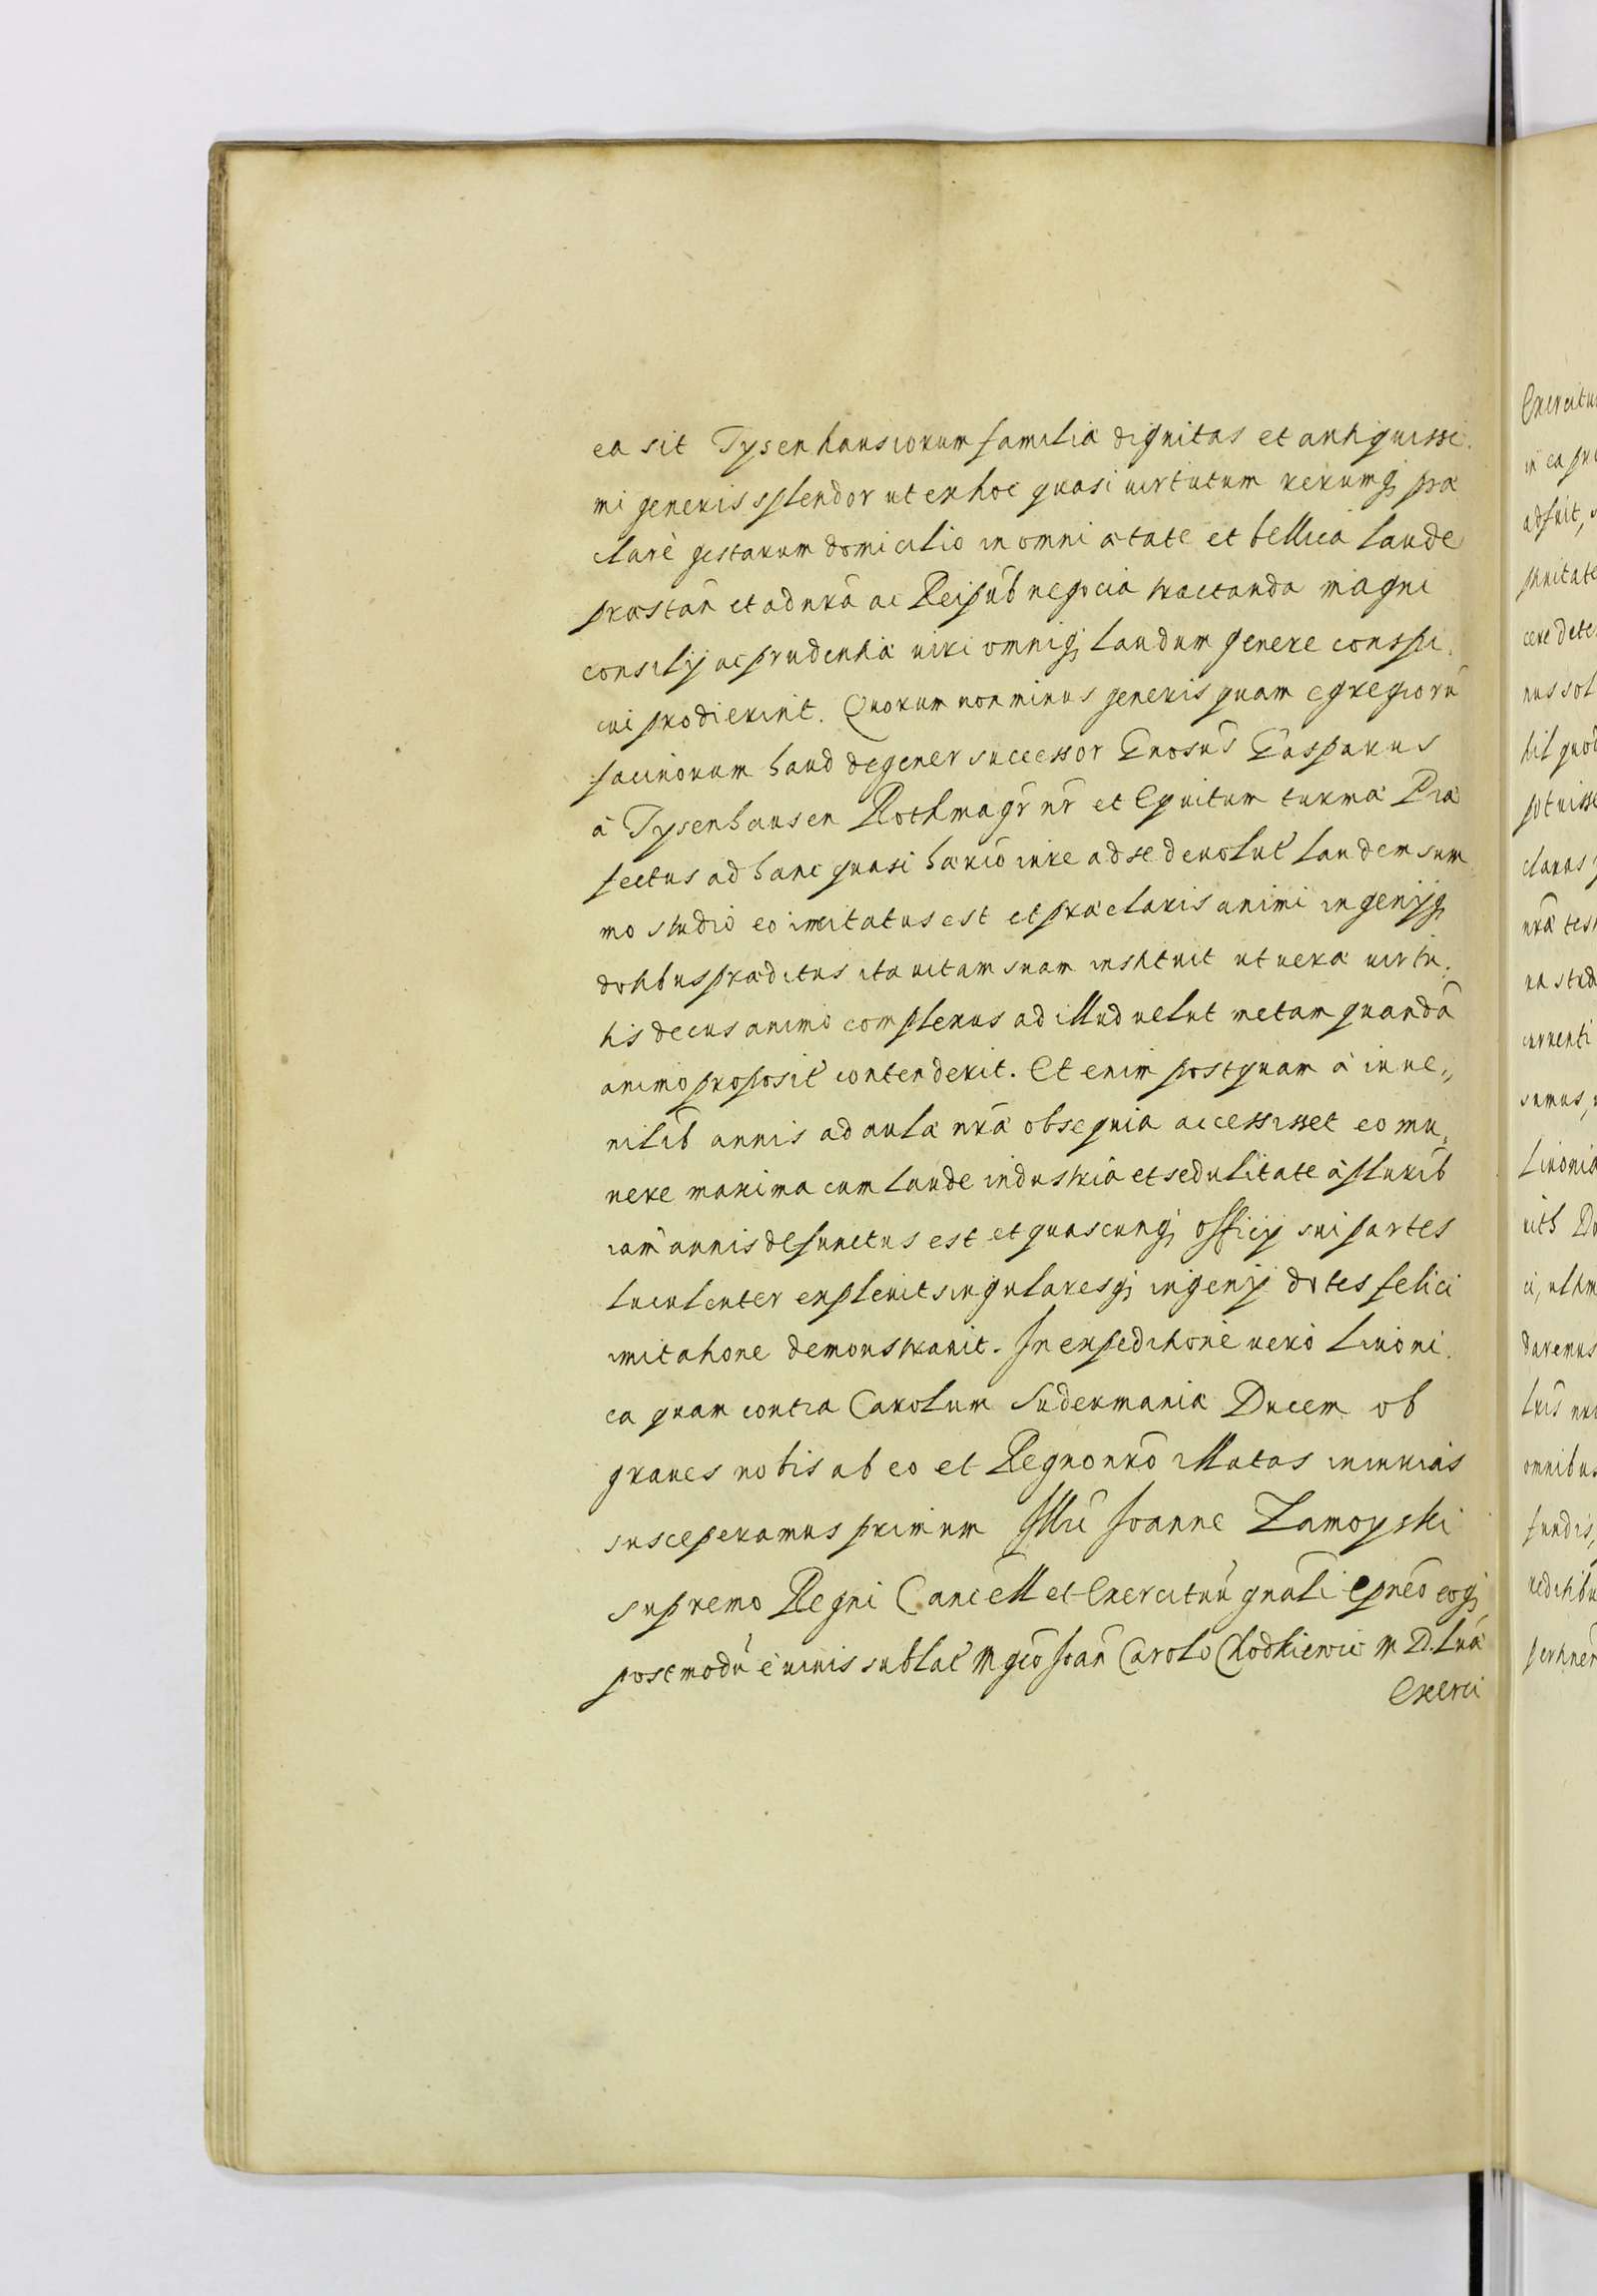 ea sit Tysenhausiorum familiæ dignitas et antiquissi.
mi generis splendor ut ex hoc quasi uirtutum rerumq; præ
clarè gestarum domicilio in omni ætate et bellica laude
præstan̄ et ad nrã ac Reipub̄ negocia tractanda magni
consilij ac prudentiæ uiri omniq; laudum genere conspi.
cui prodierint. Quorum non minus generis quam egregiorū
facinorum haud degener successor Gnosus̄ Gasparus
à Tysenhausen Rothmagr̄ nr̄ et Equitum turmæ Præ
fectus ad hanc quasi hærio iure ad se deuolut̄ laudem sum
mo studio eo imitatus est et præclaris animi ingenijq;
dotibus præditus ita uitam suam instituit ut ueræ uirtu.
tis decus animo complexus ad illud uelut metam quandã
animo proposit̄ contenderit. Etenim postquam à iuue,,
nilib̄ annis ad aulæ nræ̃ obsequia accessisset eo mu,,
nere maxima cum laude industria et sedulitate à plurib̄
iam annis defunctus est et quascunq; officij sui partes
luculenter expleuit singularesq; ingenij dotes felici
imitatione demonstrauit. In expeditione uerò Liuoni.
ca quam contra Carolum Sudermaniæ Ducem ob
graues nobis ab eo et Regno nrõ illatas iniurias
susceperamus primum Illri Joanne Zamoyski
supremo Regni Cancell̄ et Exercituū gnãli Epneõ eoq;
postmodū è uiuis sublat̄ Mgcõ Joan̄ Carolo Chodkiewic M. D. Luæ
Exerci
Exercitu
in ea pri
adfuit,
pnitate
cere dete
nus sol
hil quod
potuisse
claras
nrã test
na stud
currenti
sumus,
Liuonia
uith Do
ci, ultim
daremus
luis nri
omnibus
fundis,
reditibu
pertinen